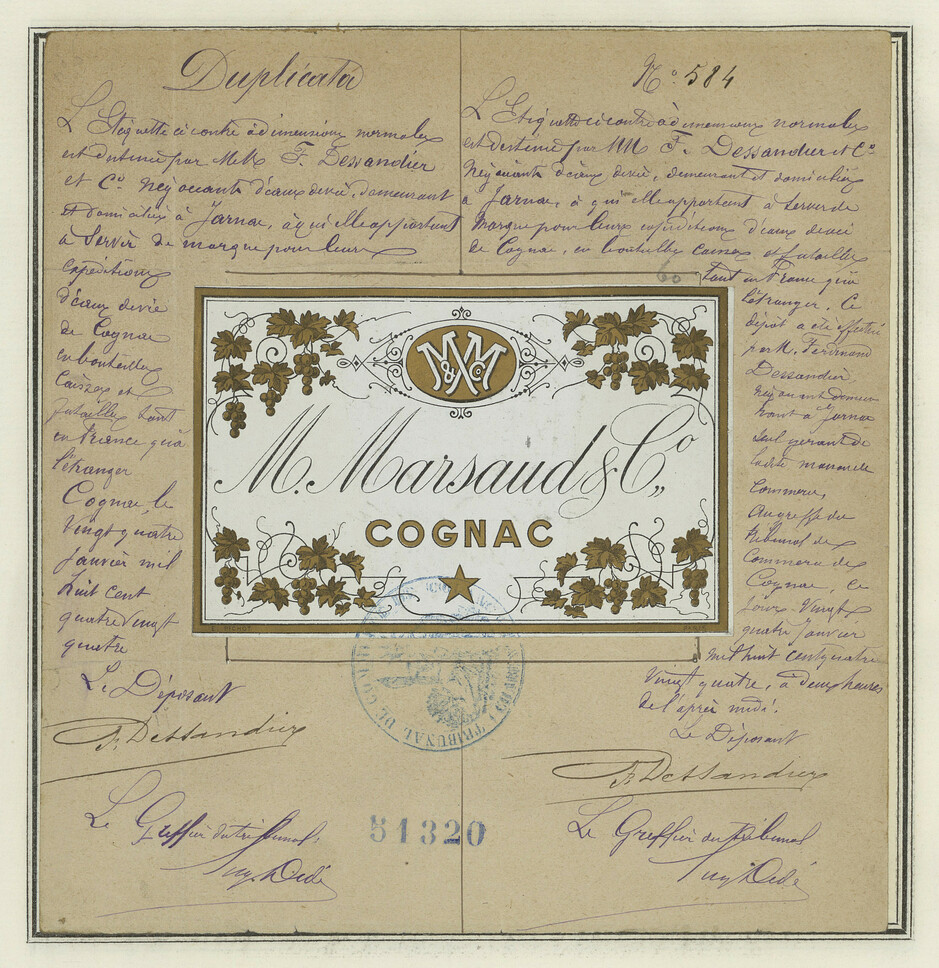 Duplicata
L'Etiquette ci contre à dimensions normales
est destinée par MM F. Dessandier
et Co Négociants d'eaux de vie, demeurant
et domiciliés à Jarnac, à qui elle appartient
à servir de marque pour leurs
expéditions
d'eaux devie
de Cognac
en bouteilles
Caisses et
futailles tant
en France qu'à
l'étranger
Cognac, le
Vingt quatre
Janvier mil
huit cent
quatre vingt
quatre
Le Déposant
F. Dessandier
Le Greffier du tribunal,
No 584
L'Etiquette ci contre à dimensions normales
est destinée par MM F. Dessandier et Co
Négociants d'eaux devie, demeurant et domiciliés
à Jarnac, à qui elle appartient à servir de
marque pour leurs expéditions d'eaux devie
de Cognac, en bouteilles caisses et futailles
60
tant en France qu'à
l'étranger. Ce
dépôt a été effectué
par M. Ferdinand
Dessandier
Négociant demeu-
rant à Jarnac
seul gérant de
ladite maison de
Commerce,
Au greffe du
tribunal de
Commerce de
Cognac, ce
jour Vingt
quatre Janvier
mil huit cent quatre
Vingt quatre, à deux heures
de l'après midi.
Le Déposant
F. Dessandier
Le Greffier du tribunal
M & Co M
M. Marsaud & Co,,
COGNAC
PARIS
TRIBUNAL DE COMMERCE
51320